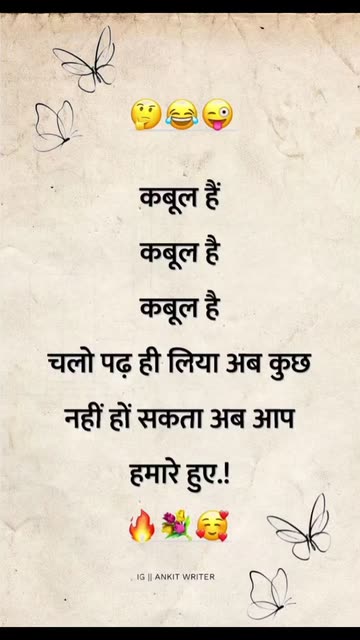 🤔😂😜
कबूल हैं
कबूल है
कबूल है
चलो पढ़ ही लिया अब कुछ
नहीं हों सकता अब आप
हमारे हुए.!
🔥💐🥰
. IG || ANKIT WRITER